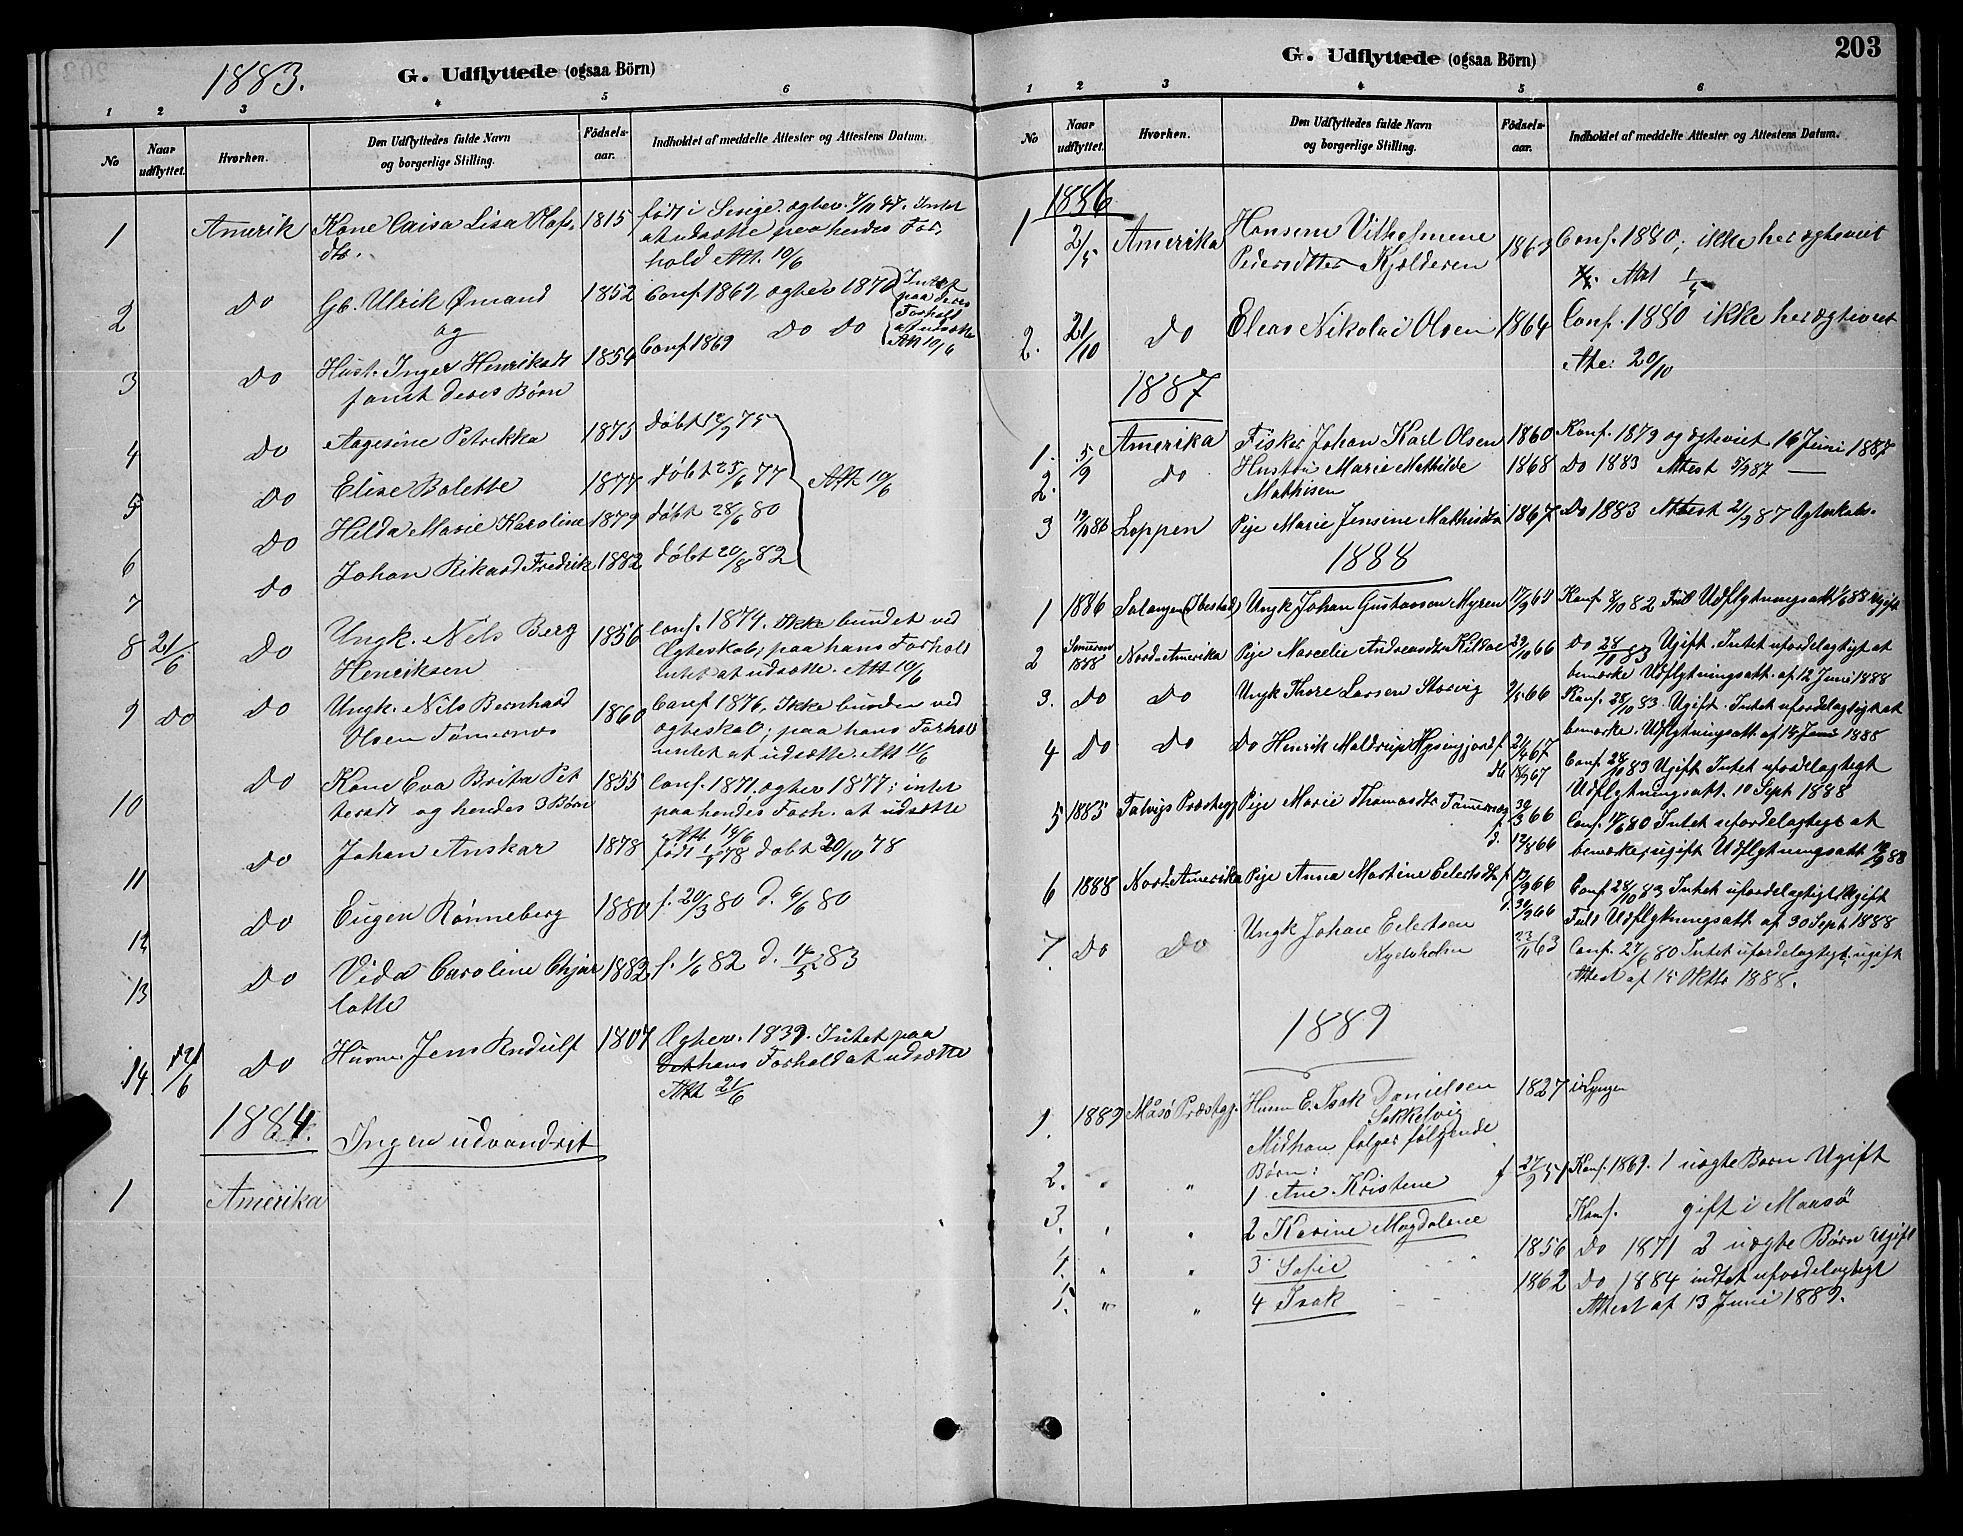 1883.
G. Udflyttede (ogsaa Börn)
1 2 3 4 5 6
No
Naar udflyttet.
Hvorhen.
Den Udflyttedes fulde Navn og borgerlige Stilling.
Födsels-aar.
Indholdet af meddelte Attester og Attestens Datum.
1 Amerik Kone Caisa Lisa Olafs. 1815 født i Sverige. ægtev.
dtr. at udsætte paa hendes For-
hold Att. 19/6
2 Do Gb. Ulrik Ømand 1852 Conf. 1869 ægtev 1870 Intet
og paa deres
Forhold
at udsætte
Att 19/6
3 Do Hust. Inger Henriksdt 1854 Conf 1869 Do Do
samt deres Børn
4 Do Aagesine Petrikka 1875 døbt 12/9 75
5 Do Elise Bolette 1877 døbt 25/6 77 Att 19/6
6 Do Hilda Marie Karoline 1879 døbt 28/6 80
7 Do Johan Rikard Fredrik 1882 døbt 20/8 82
8 21/6 Do Ungk. Nils Berg 1856 Conf. 1874. Ikke bundet ved
Henriksen Ægteskab; paa hans Forhold
intet at udsætte. Att 19/6
9 Do Do Ungk. Nils Bernhard 1860 Conf 1876. Ikke bunden ved
Olsen Tømernes ægteskab; paa hans Forhold
intet at udsætte. Att 19/6
10 Do Kone Eva Brita Pet 1855 Conf. 1871. ægtev 1877; intet
tersdt og hendes 3 Børn paa hendes Forh. at udsætte
Att. 19/6
11 Do Johan Anskar 1878 født 78 døbt 20/10 78
12 Do Eugen Rønneberg 1880 f. 20/3 80 d. 6/6 80
13 Do Vida Caroline Chjar 1882 f. 1/6 82 d. 83
lotte
14. 21/6 Do Husm. Jens Rndulf 1807 Ægtev. 1839. Intet paa
hans Forhold at udsætte
Att 21/6
1884. Ingen udvandret
1 Amerika
G. Udflyttede (ogsaa Börn)
203
1 2 3 4 5 6
No
Naar udflyttet.
Hvorhen.
Den Udflyttedes fulde Navn og borgerlige Stilling.
Födsels-aar.
Indholdet af meddelte Attester og Attestens Datum.
1886
1 2/5 Amerika Hansine Vilhelmene
Pedersdtter Kjelderen Conf. 1880; ikke her ægteviet
Att
2. 21/10 Do Elias Nikolai Olsen 1864 Conf. 1880 ikke her ægteviet
20/10
1887
1. 5/9 Amerika Fisker Johan Karl Olsen 1860 Konf. 1879 og ægteviet 16 Juni 1887
2. Do Hustru Marie Mathilde 1868 Do 1883 Attest 5/9 87 —
Mathisen
3 86 Loppen Pige Marie Jensine Mathisdtr 1867 Do 1883 Attest 2/9 87 Ægteskabs-
1888
1 1886 Salangen (Ibestad) Ungk Johan Gustavsen Myren 17/9 64 Konf 8/10 82 Full Udflytningsatt Ugift
2 Sommeren 1888 Nord-Amerika Pige Marcelie Andreasdtr 29/10 66 Do 28/10 83 Ugift. Intet ufordelagtigt at
bemærke Udflytningsatt. af 12 Juni 1888
3. Do Do Ungk Thore Larsen Storvig 66 Konf. 28/10 83. Ugift. Intet ufordelagtigt at
bemærke. Udflytningsatt af 14 Juni 1888
4 Do Do Do Henrik Maldrup f. 21/4 67 Conf. 28/10 83 Ugift Intet ufordelagtigt
Udflytningsatt. 10 Sept 1888
5 1885 Talvigs Præstegj Pige Marie Thomasdtr Tømernes 66 Conf. 80 Intet ufordelagtigt at
d. 66 bemærke; ugift Udflytningsatt 88
6 1888 Nord-Amerika Pige Anna Martine Eilertsdtr f. 66 Conf 28/10 83 Intet ufordelagtigt Ugift
66 Full Udflytningsatt af 30 Sept 1888
7. Do Do Ungk Johan Eilertsen 23/11 63 Conf. 27/6 80 Intet ufordelagtigt, ugift
Attest af 15 Oktbr 1888.
1889
1. 1889 Måsø Præstegj. Husm E. Isak Danielsen 1827 i Lyngen
Sakkelvig
Med han følger følgende
Børn:
2. " " 1 Ane Kristene f 27/9 51 Konf. 1869. 1 uægte Barn Ugift
3. " " 2 Karine Magdalene Konf. gift i Maasø
4. " " 3 Sofie 1856 Do 1871 2 uægte Børn Ugift
5. " " 4 Isak 1862 Do 1884 indtet ufordelagtigt
Attest af 13 Juni 1889.